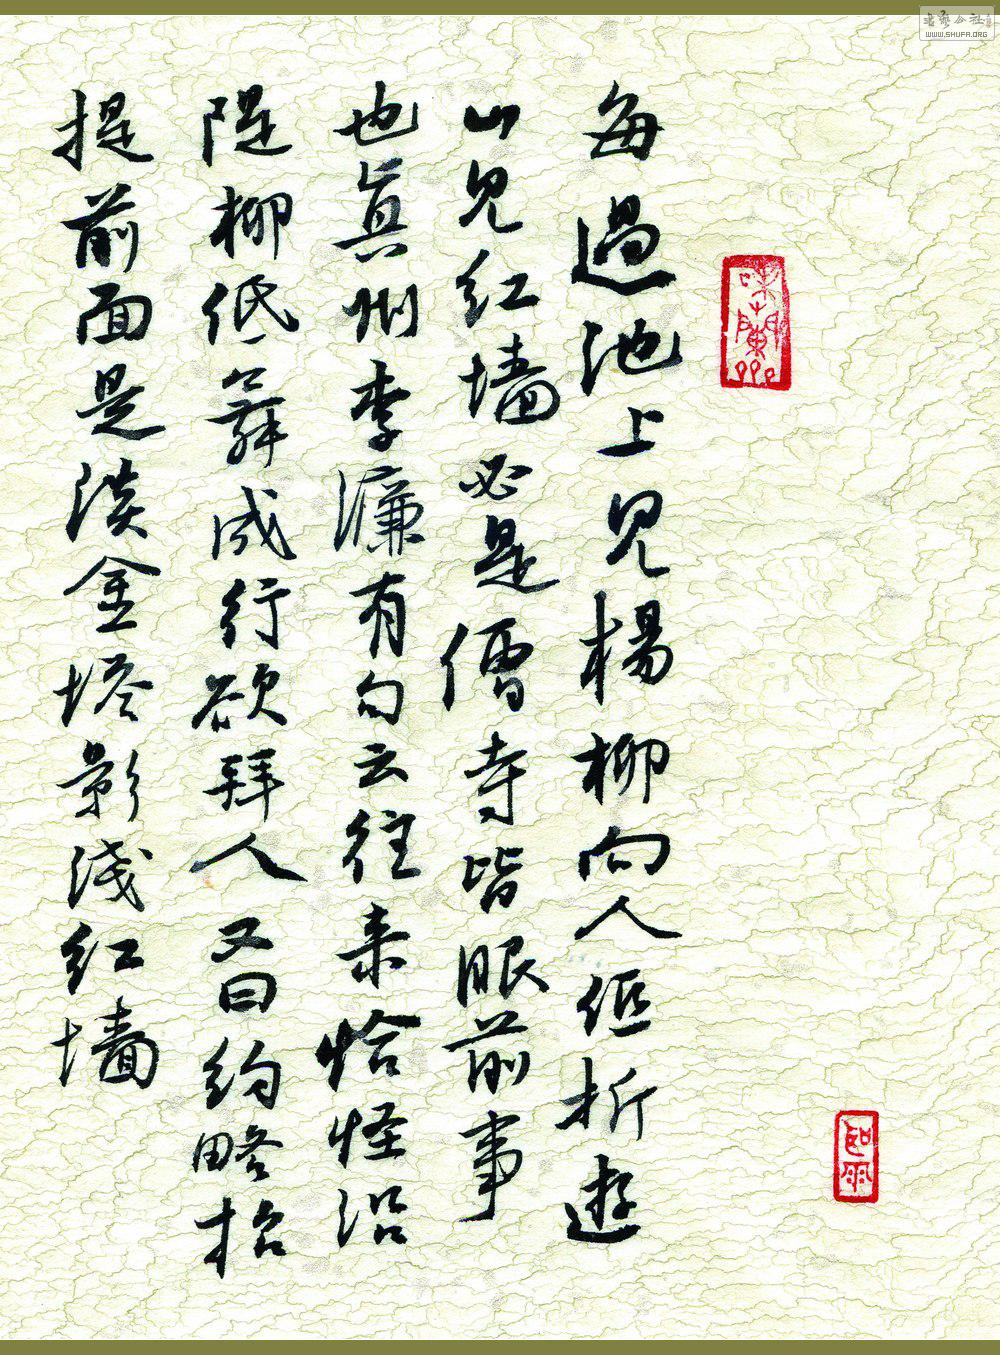 每過池上見楊柳向人伛折遊
山見紅墙必是僧寺皆眼前事
也真州李濂有句云往來恰怪沿
隄柳低舞成行欲拜人又曰約略招
提前面是淡金塔影淺紅墙
书艺公社
WWW.SHUFA.ORG